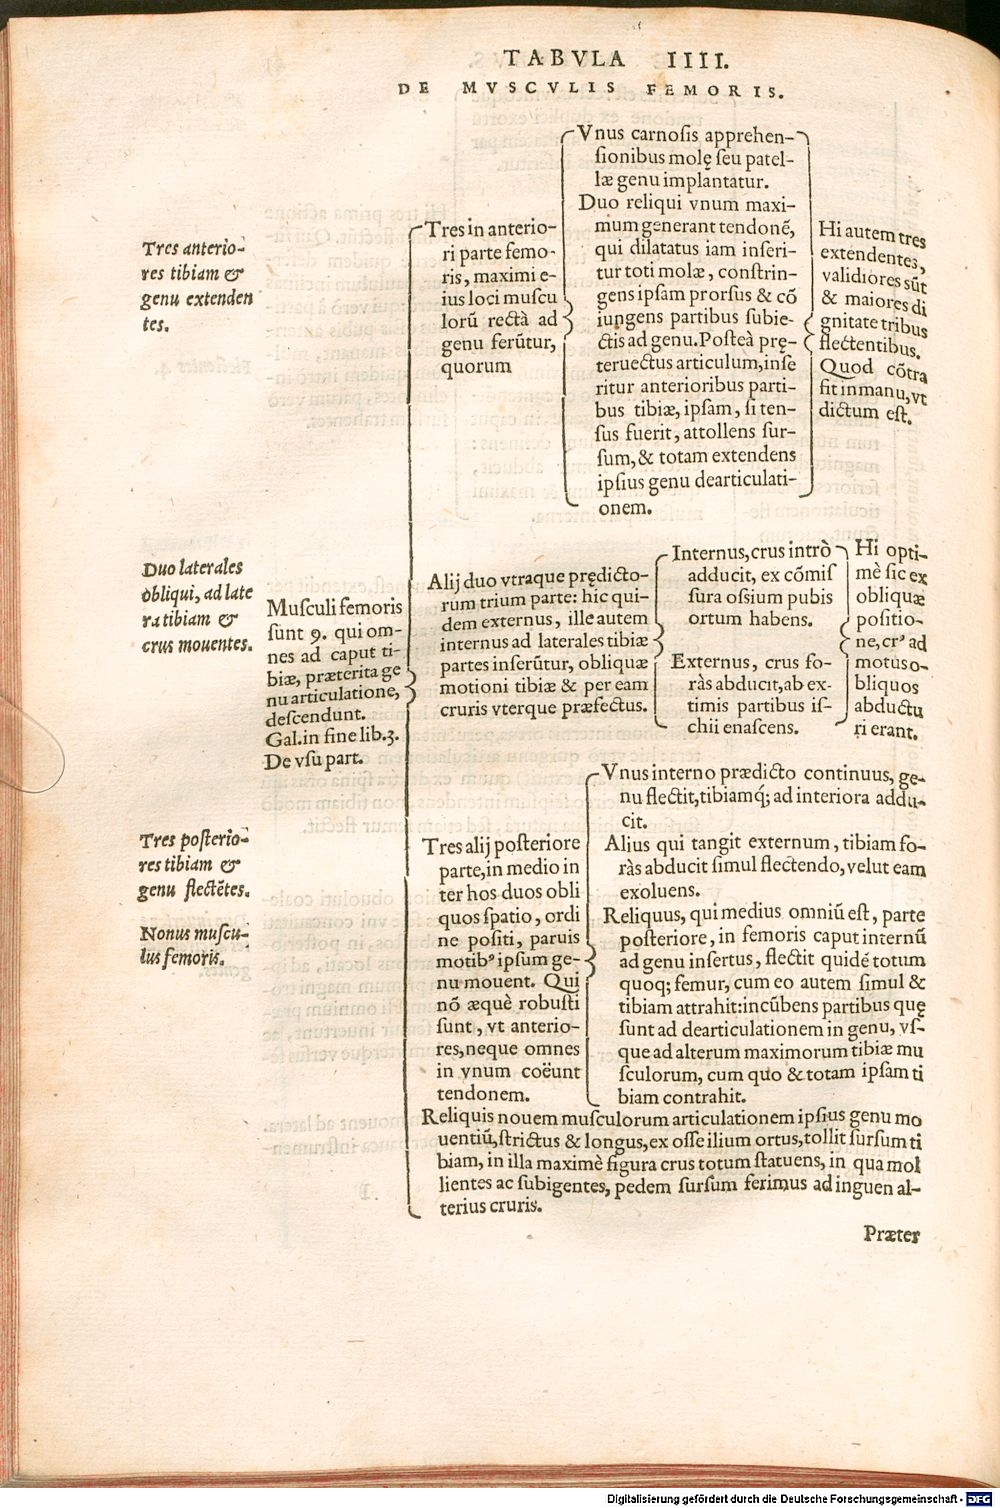 TABVLA IIII.
DE MVSCVLIS FEMORIS.
Tres anterio-
res tibiam &
genu extenden
tes.
Duo laterales
obliqui, ad late
ra tibiam &
crus mouentes.
Tres posterio-
res tibiam &
genu flectẽtes.
Nonus muscu-
lus femoris.
Musculi femoris
sunt 9. qui om-
nes ad caput ti-
biæ, præterita ge
nu articulatione,
descendunt.
Gal.in fine lib.3.
De vsu part.
Tres in anterio-
ri parte femo-
ris, maximi e-
ius loci muscu
lorũ rectà ad
genu ferũtur,
quorum
Vnus carnosis apprehen-
sionibus molę seu patel-
læ genu implantatur.
Duo reliqui vnum maxi-
mum generant tendonẽ,
qui dilatatus iam inseri-
tur toti molæ, constrin-
gens ipsam prorsus & cõ
iungens partibus subie-
ctis ad genu. Posteà prę-
teruectus articulum, inse
ritur anterioribus parti-
bus tibiæ, ipsam, si ten-
sus fuerit, attollens sur-
sum, & totam extendens
ipsius genu dearticulati-
onem.
Hi autem tres
extendentes,
validiores sũt
& maiores di
gnitate tribus
flectentibus.
Quod cõtra
fit in manu, vt
dictum est.
Alij duo vtraque prędicto-
rum trium parte: hic qui-
dem externus, ille autem
internus ad laterales tibiæ
partes inserũtur, obliquæ
motioni tibiæ & per eam
cruris vterque præfectus.
Internus, crus intrò
adducit, ex cõmis
sura ossium pubis
ortum habens.
Externus, crus fo-
ràs abducit, ab ex-
timis partibus is-
chii enascens.
Hi opti-
mè sic ex
obliquæ
positio-
ne, crꝰ ad
motus o-
bliquos
abductu
ri erant.
Tres alij posteriore
parte, in medio in
ter hos duos obli
quos spatio, ordi
ne positi, paruis
motibꝰ ipsum ge-
nu mouent. Qui
nõ æquè robusti
sunt, vt anterio-
res, neque omnes
in vnum coëunt
tendonem.
Vnus interno prædicto continuus, ge-
nu flectit, tibiamq́; ad interiora addu-
cit.
Alius qui tangit externum, tibiam fo-
ràs abducit simul flectendo, velut eam
exoluens.
Reliquus, qui medius omniũ est, parte
posteriore, in femoris caput internũ
ad genu insertus, flectit quidẽ totum
quoq; femur, cum eo autem simul &
tibiam attrahit: incũbens partibus quę
sunt ad dearticulationem in genu, vs-
que ad alterum maximorum tibiæ mu
sculorum, cum quo & totam ipsam ti
biam contrahit.
Reliquis nouem musculorum articulationem ipsius genu mo
uentiũ, strictus & longus, ex osse ilium ortus, tollit sursum ti
biam, in illa maximè figura crus totum statuens, in qua mol
lientes ac subigentes, pedem sursum ferimus ad inguen al-
terius cruris.
Præter
Digitalisierung gefördert durch die Deutsche Forschungsgemeinschaft - DFG